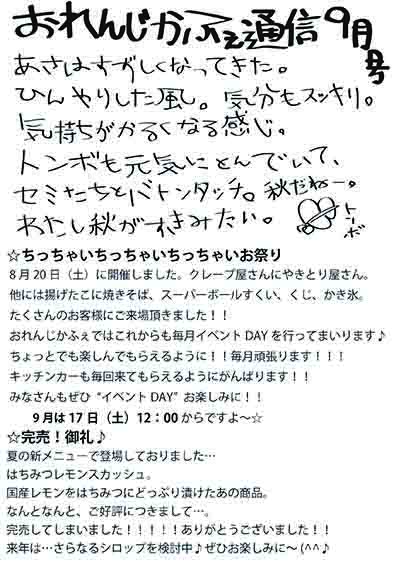 おれんじかふぇ通信9月号
あさはすずしくなってきた。
ひんやりした風。気分もスッキリ。
気持ちがかるくなる感じ。
トンボも元気にとんでいて、
セミたちとバトンタッチ。秋だねー。
わたし秋がすきみたい。
トンボ
☆ちっちゃいちっちゃいちっちゃいお祭り
8月20日（土）に開催しました。クレープ屋さんにやきとり屋さん。
他には揚げたこに焼きそば、スーパーボールすくい、くじ、かき氷。
たくさんのお客様にご来場頂きました！！
おれんじかふぇではこれからも毎月イベントDAYを行ってまいります♪
ちょっとでも楽しんでもらえるように！！毎月頑張ります！！！
キッチンカーも毎回来てもらえるようにがんばります！！
みなさんもぜひ“イベントDAY”お楽しみに！！
9月は17日（土）12：00からですよ～☆
☆完売！御礼♪
夏の新メニューで登場しておりました…
はちみつレモンスカッシュ。
国産レモンをはちみつにどっぷり漬けたあの商品。
なんとなんと、ご好評につきまして…。
完売してしまいました！！！！！ありがとうございました！！
来年は…さらなるシロップを検討中♪ぜひお楽しみに～(^^♪